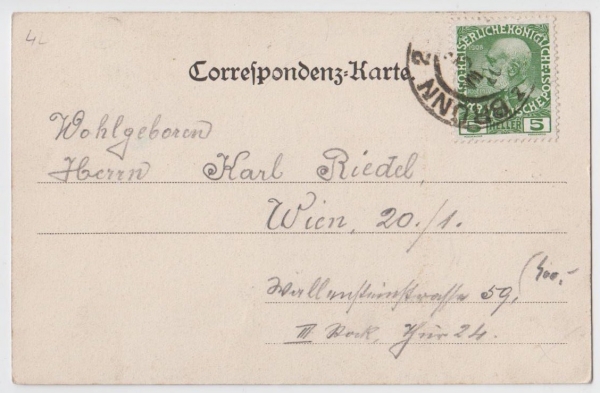 42
Correspondenz-Karte.
KAISERLICHE KÖNIGLICHE
5 HELLER 5
BRÜNN 2
Wohlgeboren
Herrn Karl Riedel
Wien, 20./1.
Wallensteinstrasse 59,
III Stock, Thür 24.